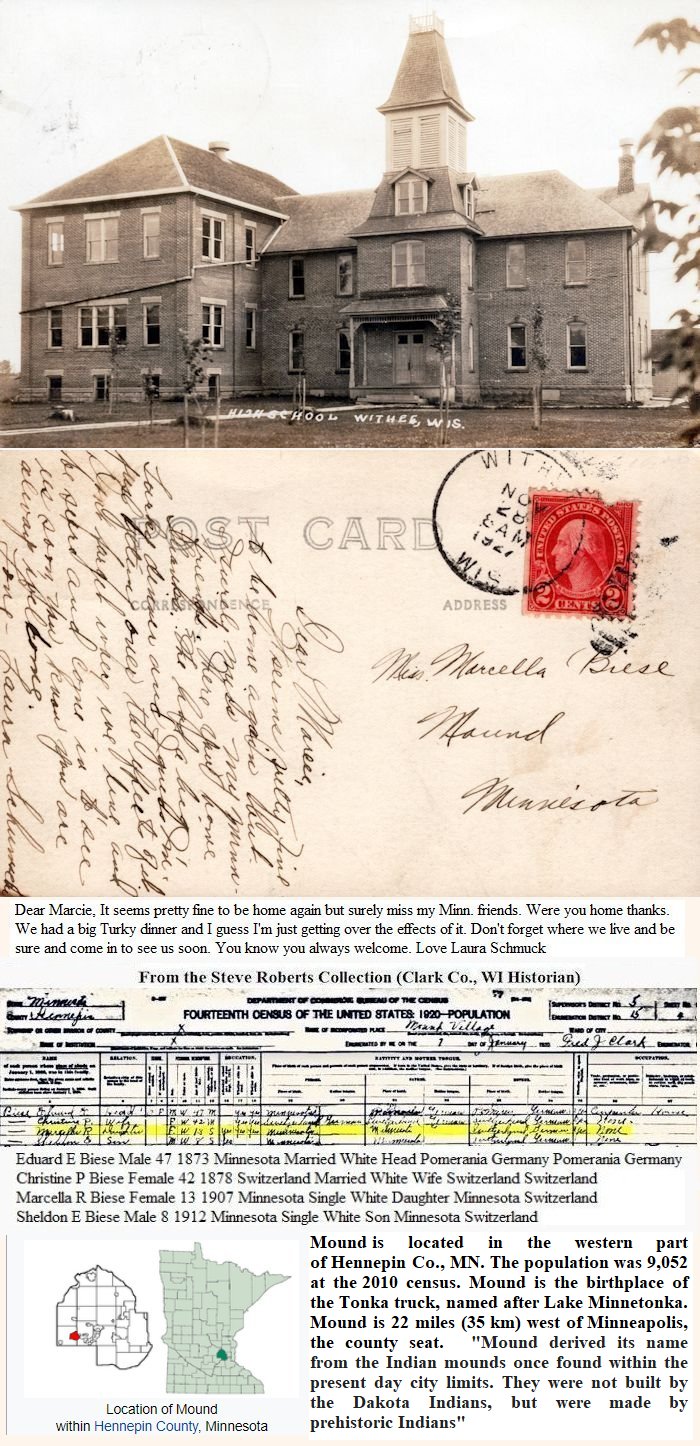 HIGH SCHOOL WITHEE, WIS.
WITHEE
NOV
28
8 AM
1927
WIS.
UNITED STATES POSTAGE
2 CENTS 2
POST CARD
CORRESPONDENCE
ADDRESS
Dear Marcie,
It seems pretty fine
to be home again but
surely miss my Minn-
friends. Were you home
thanks. We had a big
Turky dinner and I guess I'm
just getting over the effects of it.
Don't forget where we live and
be sure and come in to see
us soon. You know you are
always welcome.
Love - Laura Schmuck
Miss. Marcella Biese
Mound
Minnesota
Dear Marcie, It seems pretty fine to be home again but surely miss my Minn. friends. Were you home thanks.
We had a big Turky dinner and I guess I'm just getting over the effects of it. Don't forget where we live and be
sure and come in to see us soon. You know you always welcome. Love Laura Schmuck
From the Steve Roberts Collection (Clark Co., WI Historian)
DEPARTMENT OF COMMERCE-BUREAU OF THE CENSUS
STATE Minnesota
COUNTY Hennepin
FOURTEENTH CENSUS OF THE UNITED STATES: 1920-POPULATION
SUPERVISOR'S DISTRICT No. 5
ENUMERATION DISTRICT No. 15
TOWNSHIP OR OTHER DIVISION OF COUNTY X
NAME OF INCORPORATED PLACE Mound Village
WARD OF CITY
NAME OF INSTITUTION X
ENUMERATED BY ME ON THE 7 DAY OF January, 1920 Fred J Clark
NAME
RELATION.
EDUCATION.
NATIVITY AND MOTHER TONGUE.
OCCUPATION.
Eduard E Biese Male 47 1873 Minnesota Married White Head Pomerania Germany Pomerania Germany
Christine P Biese Female 42 1878 Switzerland Married White Wife Switzerland Switzerland
Marcella R Biese Female 13 1907 Minnesota Single White Daughter Minnesota Switzerland
Sheldon E Biese Male 8 1912 Minnesota Single White Son Minnesota Switzerland
Mound is located in the western part
of Hennepin Co., MN. The population was 9,052
at the 2010 census. Mound is the birthplace of
the Tonka truck, named after Lake Minnetonka.
Mound is 22 miles (35 km) west of Minneapolis,
the county seat. "Mound derived its name
from the Indian mounds once found within the
present day city limits. They were not built by
the Dakota Indians, but were made by
prehistoric Indians"
Location of Mound
within Hennepin County, Minnesota